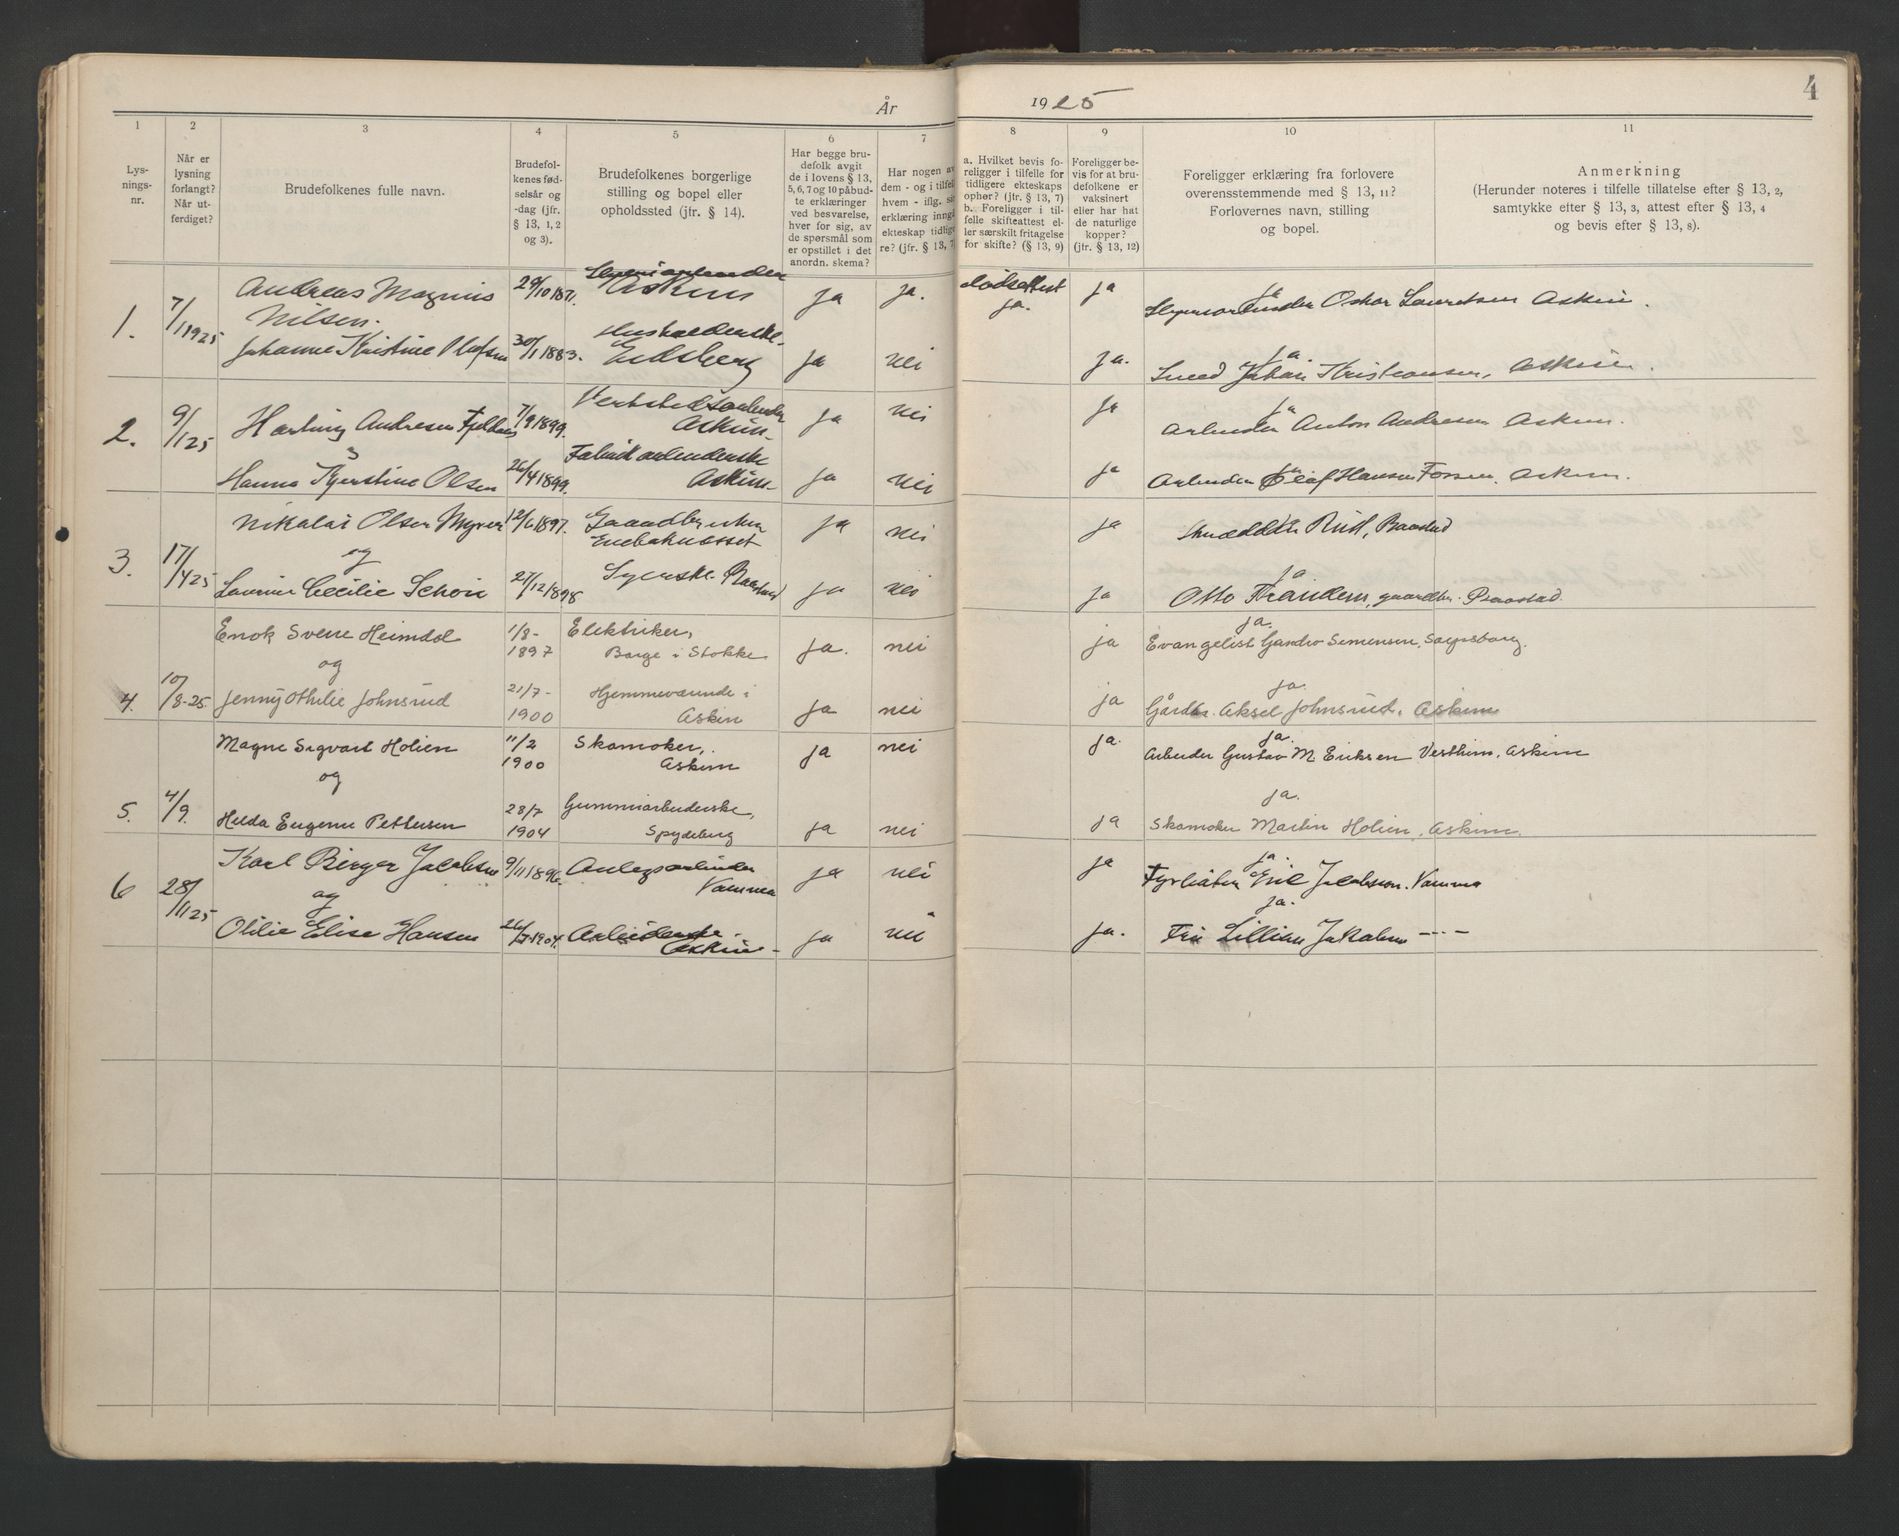 År 1925
4
1 2 3 4 5 6 7 8 9 10 11
Lys-
nings-
nr.
Når er
lysning
forlangt?
Når ut-
ferdiget?
Brudefolkenes fulle navn.
Brudefol-
kenes fød-
selsår og
-dag (jfr.
§ 13, 1, 2
og 3).
Brudefolkenes borgerlige
stilling og bopel eller
opholdssted (jfr. § 14).
Har begge bru-
defolk avgit
de i lovens § 13,
5, 6, 7 og 10 påbud-
te erklæringer
ved besvarelse,
hver for sig, av
de spørsmål som
er opstillet i det
anordn. skema?
Har nogen av
dem - og i tilfel
hvem - iflg. si
erklæring inngå
ekteskap tidlige
re? (jfr. § 13, 7
a. Hvilket bevis fo-
religger i tilfelle for
tidligere ekteskaps
ophør? (jfr. § 13, 7)
b. Foreligger i til-
felle skifteattest el-
ler særskilt fritagelse
for skifte? (§ 13, 9)
Foreligger be-
vis for at bru-
defolkene er
vaksinert
eller har hat
de naturlige
kopper?
(jfr. § 13, 12)
Foreligger erklæring fra forlovere
overensstemmende med § 13, 11?
Forlovernes navn, stilling
og bopel.
Anmerkning
(Herunder noteres i tilfelle tillatelse efter § 13, 2,
samtykke efter § 13, 3, attest efter § 13, 4
og bevis efter § 13, 8).
1. 7/1 1925 Andreas Magnus
Nilsen. 29/10 1871. Askim ja ja. dødsattest
ja. ja
ja
Oskar Lauritsen Askim.
Johanne Kristine Olafsen 30/1 1883. Husholderske
Eidsberg ja nei ja. ja
Smed Johan Kristiansen, Askim.
2. 9/1 25 Hartvig Andresen 7/9 1899. Verkstedsarbeider
Askim ja nei ja ja
Arbeider Anton Andresen Askim.
Hanna Kjerstine Olsen 26/4 1899. Fabrikarbeiderske
Askim ja nei ja ja
Arbeider Olaf Hansen Fossen, Askim.
3. 17/4 25 Nikolai Olsen Myrer 12/6 1897. Gaardbruker
Enebaknesset ja nei ja Rud, Baastad
og
Cecilie Schou 27/12 1898 Syerske. Baastad ja nei ja ja
Otto gaardbr. Baastad.
4. 10/8-25. Enok Sverre Heimdal 1/8-
1897 Elektriker,
Borge i Stokke ja. nei ja ja.
Evangelist Semensen, Sarpsborg.
og
Jenny Othilie Johnsrud 21/7-
1900 Hjemmeværende i
Askim ja nei ja ja.
Gårdbr. Aksel Johnsrud. Askim
5. 4/9. Magne Sigvart Holien 11/2
1900 Skomaker,
Askim ja nei ja. ja.
Arbeider Gustav M. Eriksen Vestheim, Askim
og
Hilda Eugenie Pettersen 28/7
1904 Gummiarbeiderske,
Spydeberg ja nei ja ja.
Skomaker Martin Holien, Askim.
6 28/11 25 Karl Birger Jacobsen 9/11 1896. Anlegsarbeider
Vamma ja nei ja ja
Fyrbøter Jacobsen. Vamma
og
Otilie Elise Hansen 26/7-1904. Arbeiderske
Askim - ja nei ja. ja.
Fru Lillian Jakobsen - " -